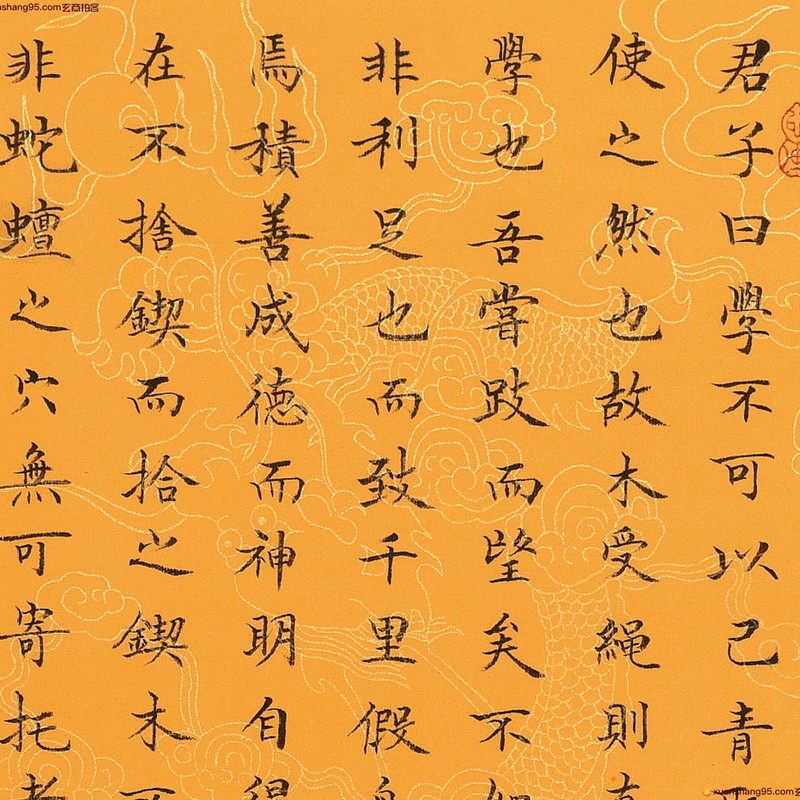 君子曰學不可以已青
使之然也故木受繩則
學也吾嘗跂而望矣不如
非利足也而致千里假
焉積善成德而神明自得
在不捨鍥而拾之鍥木
非蛇蟺之穴無可寄托者
shang95.com玄商拍客
xuanshang95.com玄